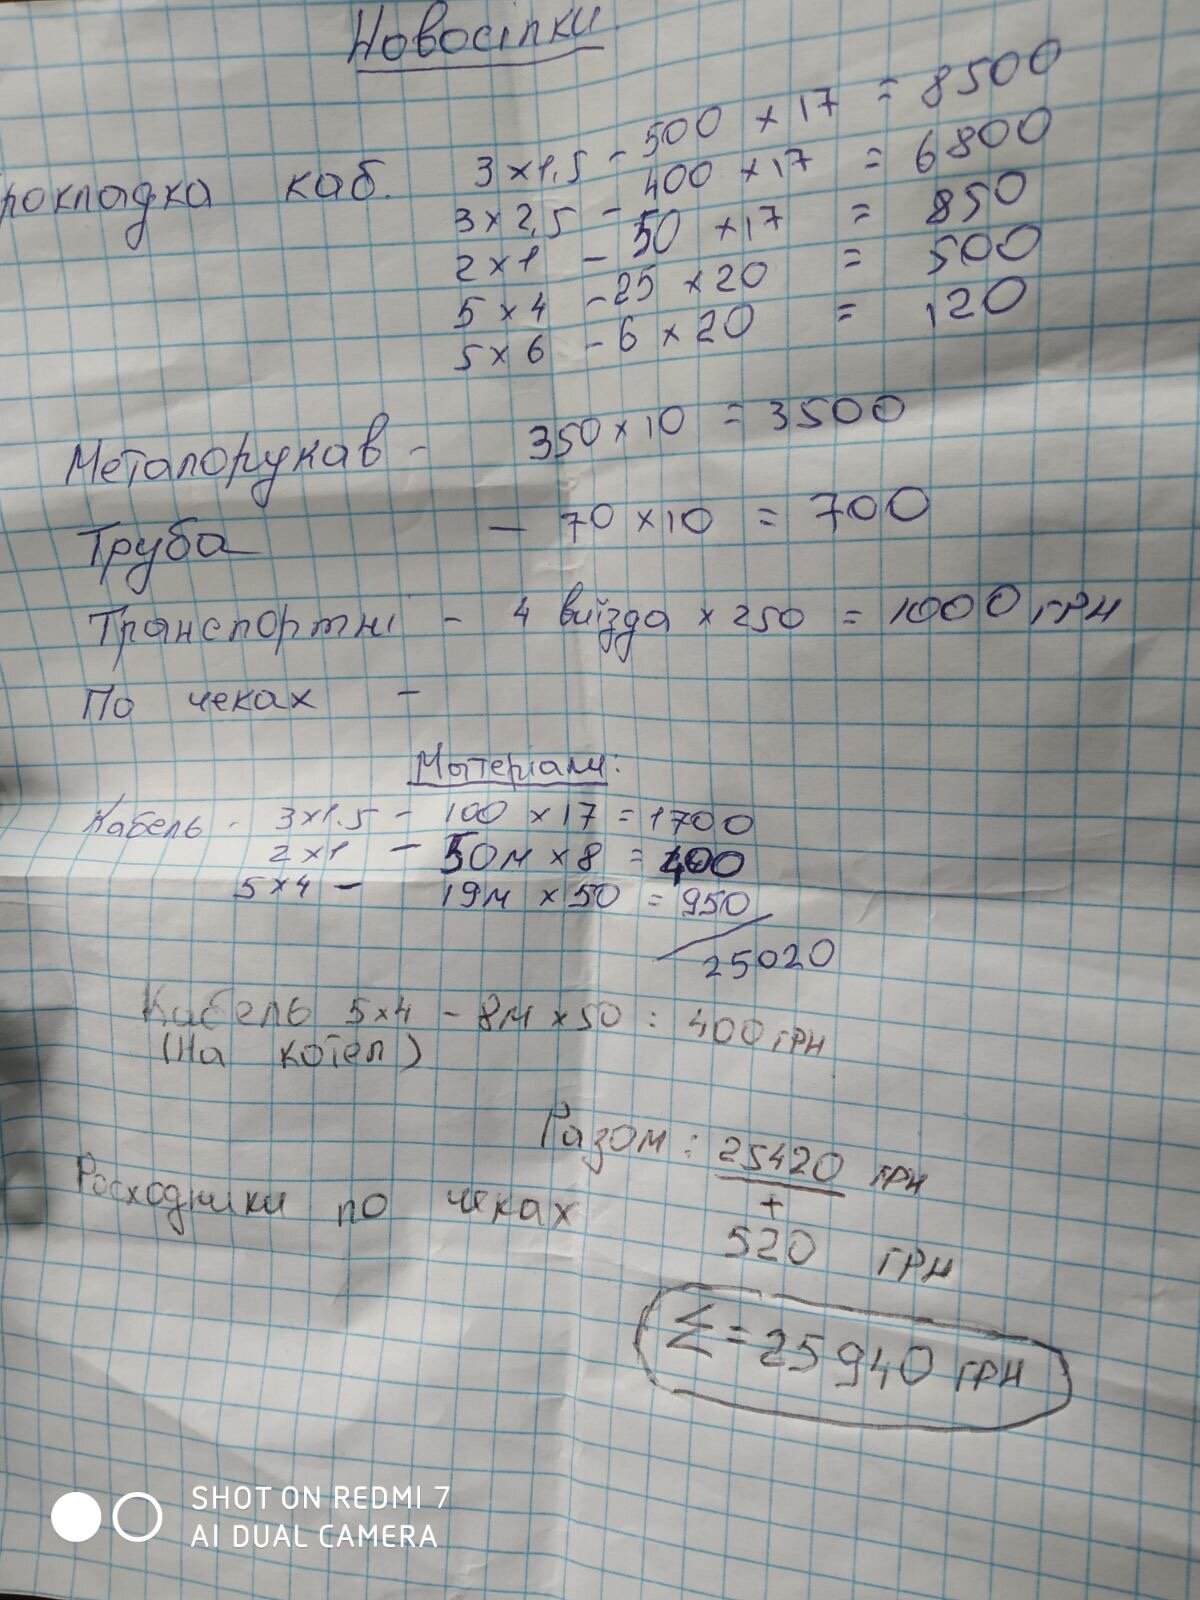 Новосілки
Прокладка каб. 3×1,5 - 500 × 17 = 8500
3×2,5 - 400 × 17 = 6800
2×1 - 50 × 17 = 850
5×4 - 25 × 20 = 500
5×6 - 6 × 20 = 120
Металорукав - 350×10 = 3500
Труба - 70×10 = 700
Транспортні - 4 виїзда × 250 = 1000 грн
По чеках -
Матеріали:
Кабель - 3×1.5 - 100 × 17 = 1700
2×1 - 50м × 8 = 400
5×4 - 19м × 50 = 950
25020
Кабель 5×4 - 8м × 50 = 400 грн
(На котел)
Разом: 25420 грн
+
Росходники по чеках 520 грн
Σ = 25940 грн
SHOT ON REDMI 7
AI DUAL CAMERA